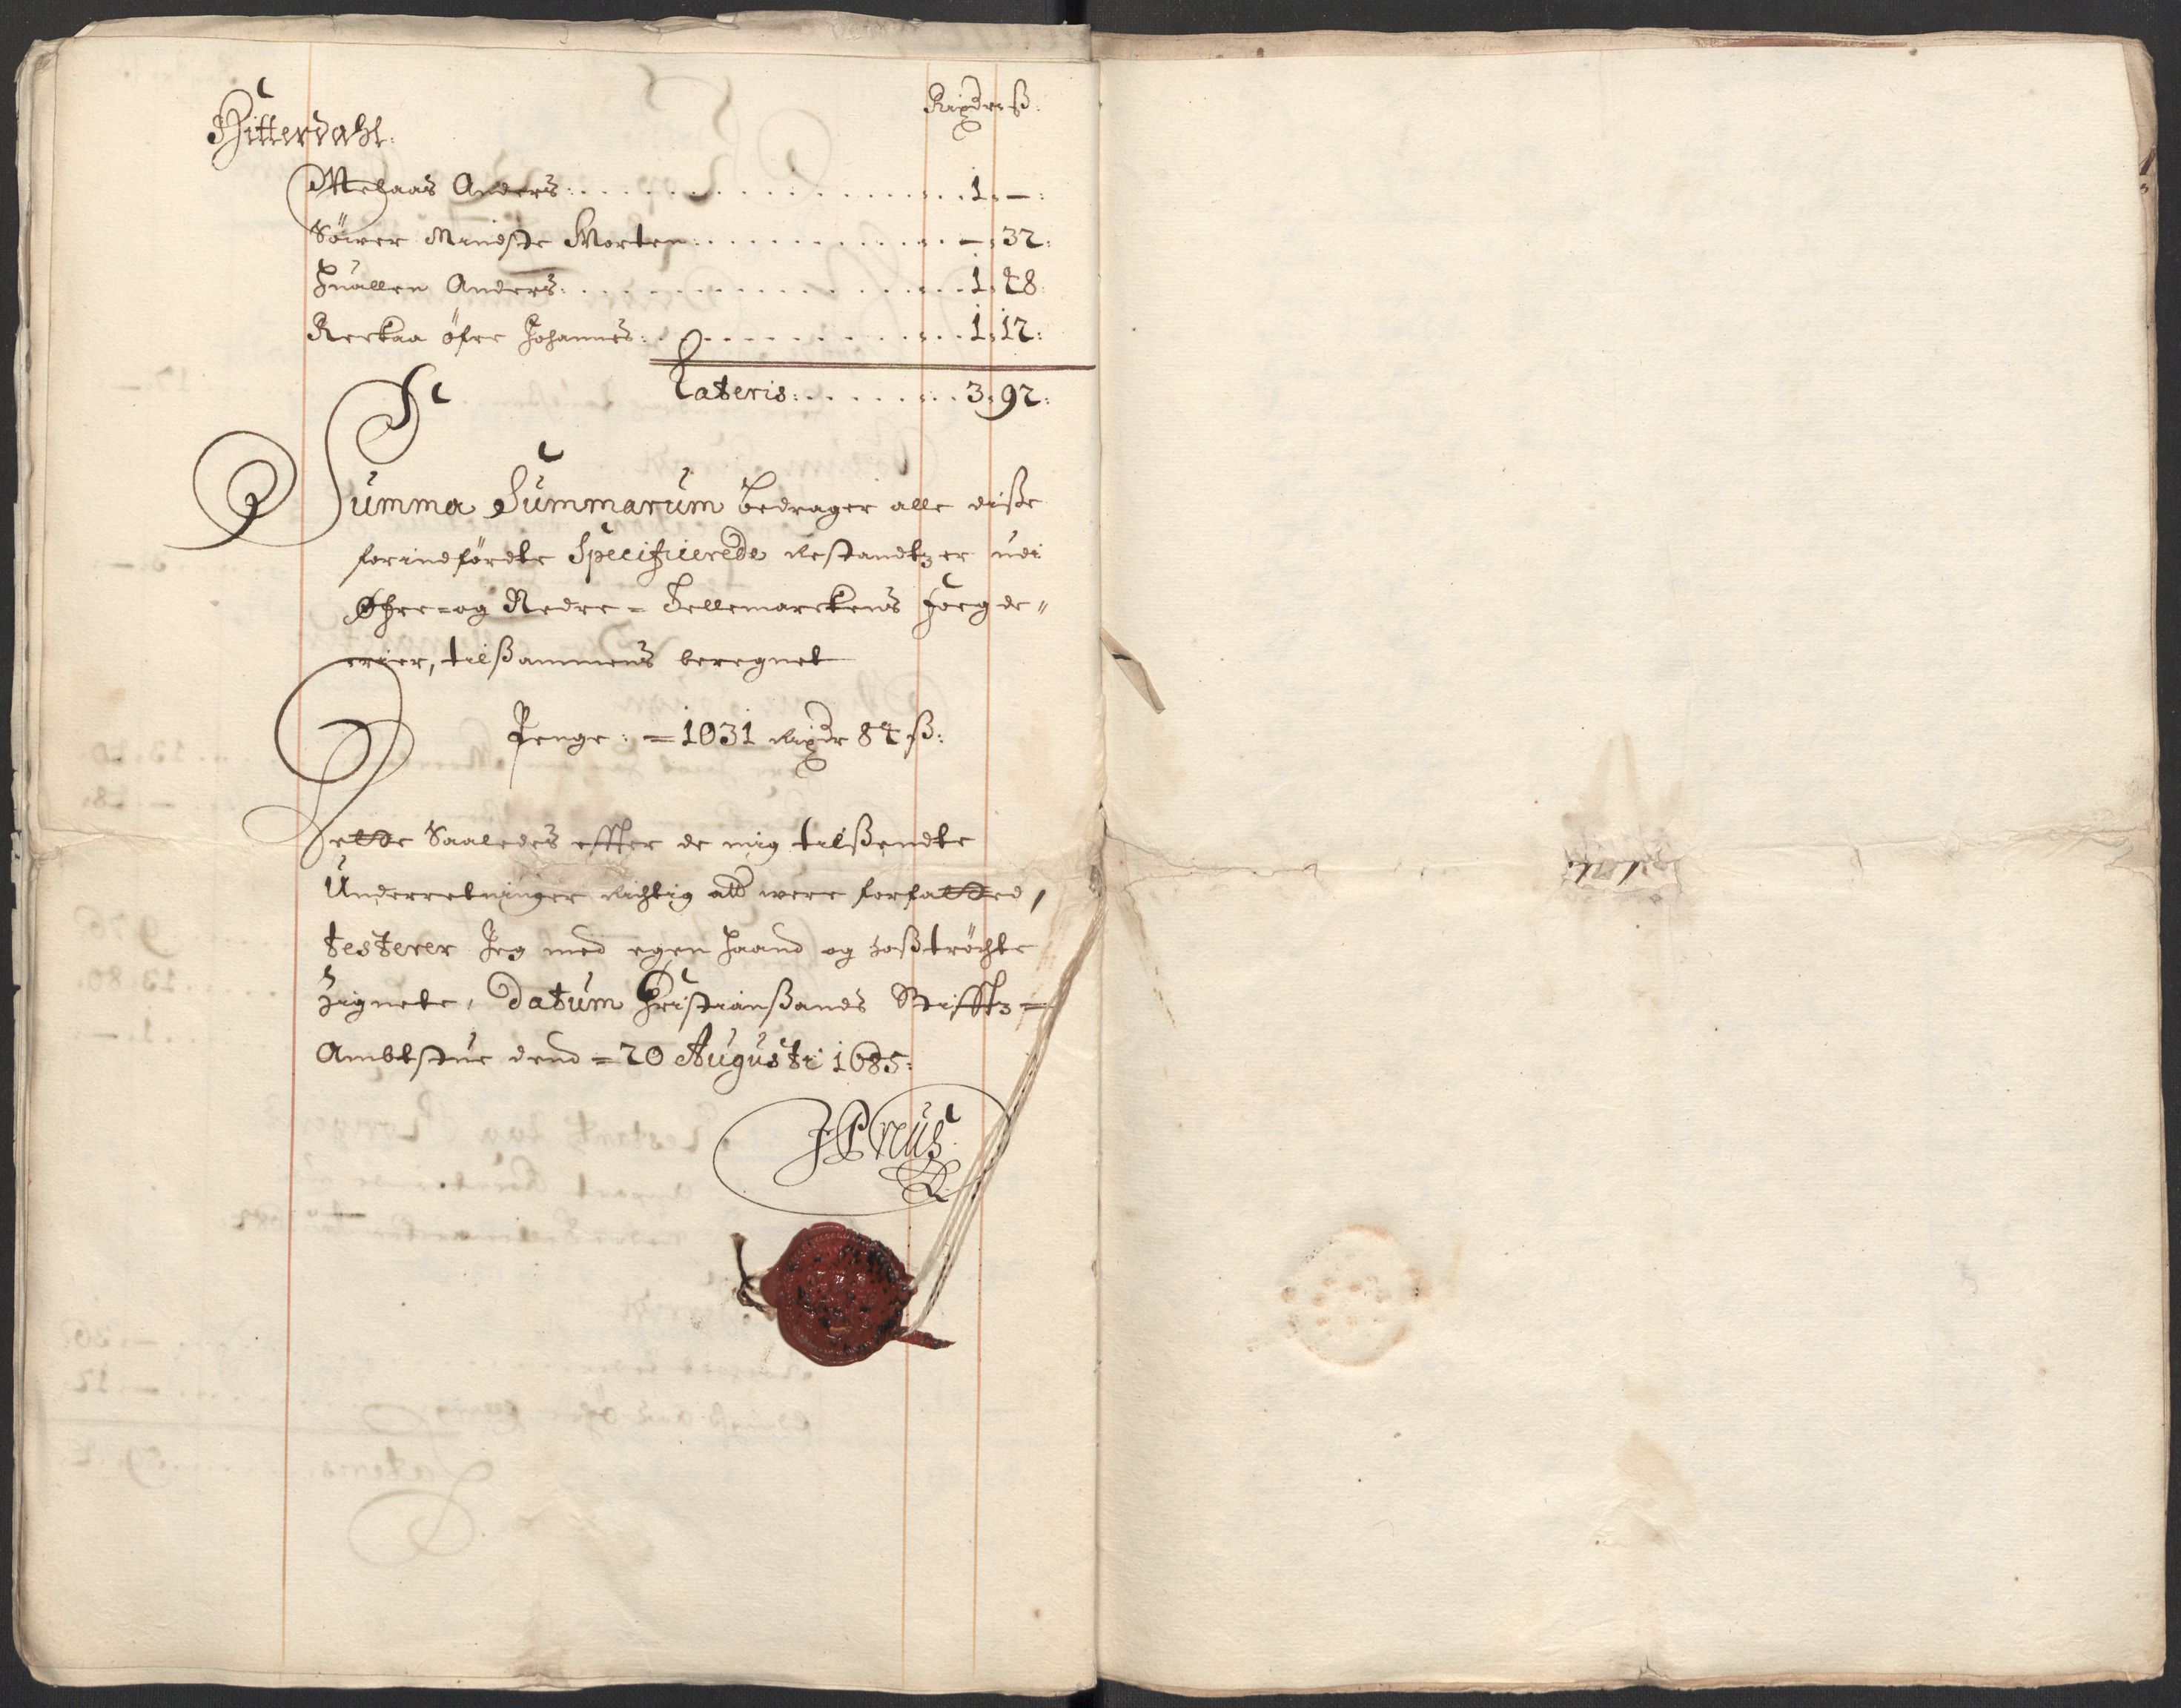 Rixdr ß:
Hitterdahl:
Mehaas Anders: . . . . 1 : — :
Söwer Mindste Morten: . . . . — : 32 :
Huallen Anders: . . . . 1 : 48 :
Reekaa öfre Johannes: . . . . 1 : 12 :
Lateris: . . . . 3 : 92 :
Summa Summarum bedrager alle disse
forindfördte Specificierede Restandtzer udi
Øfre- og Nedre- Tellemarckens Fogde〃
erier, tilßammens beregnet
Penge: = 1031 Rixdr 84 ß:
Dette Saaledes effter de mig tilßendte
Underretninger Richtig att were forfatted,
testerer Jeg med egen Haand og hoßtröchte
Zignete, Datum Christianßands Stifftz=
Ambtstue dend = 20 Augusti 1685: